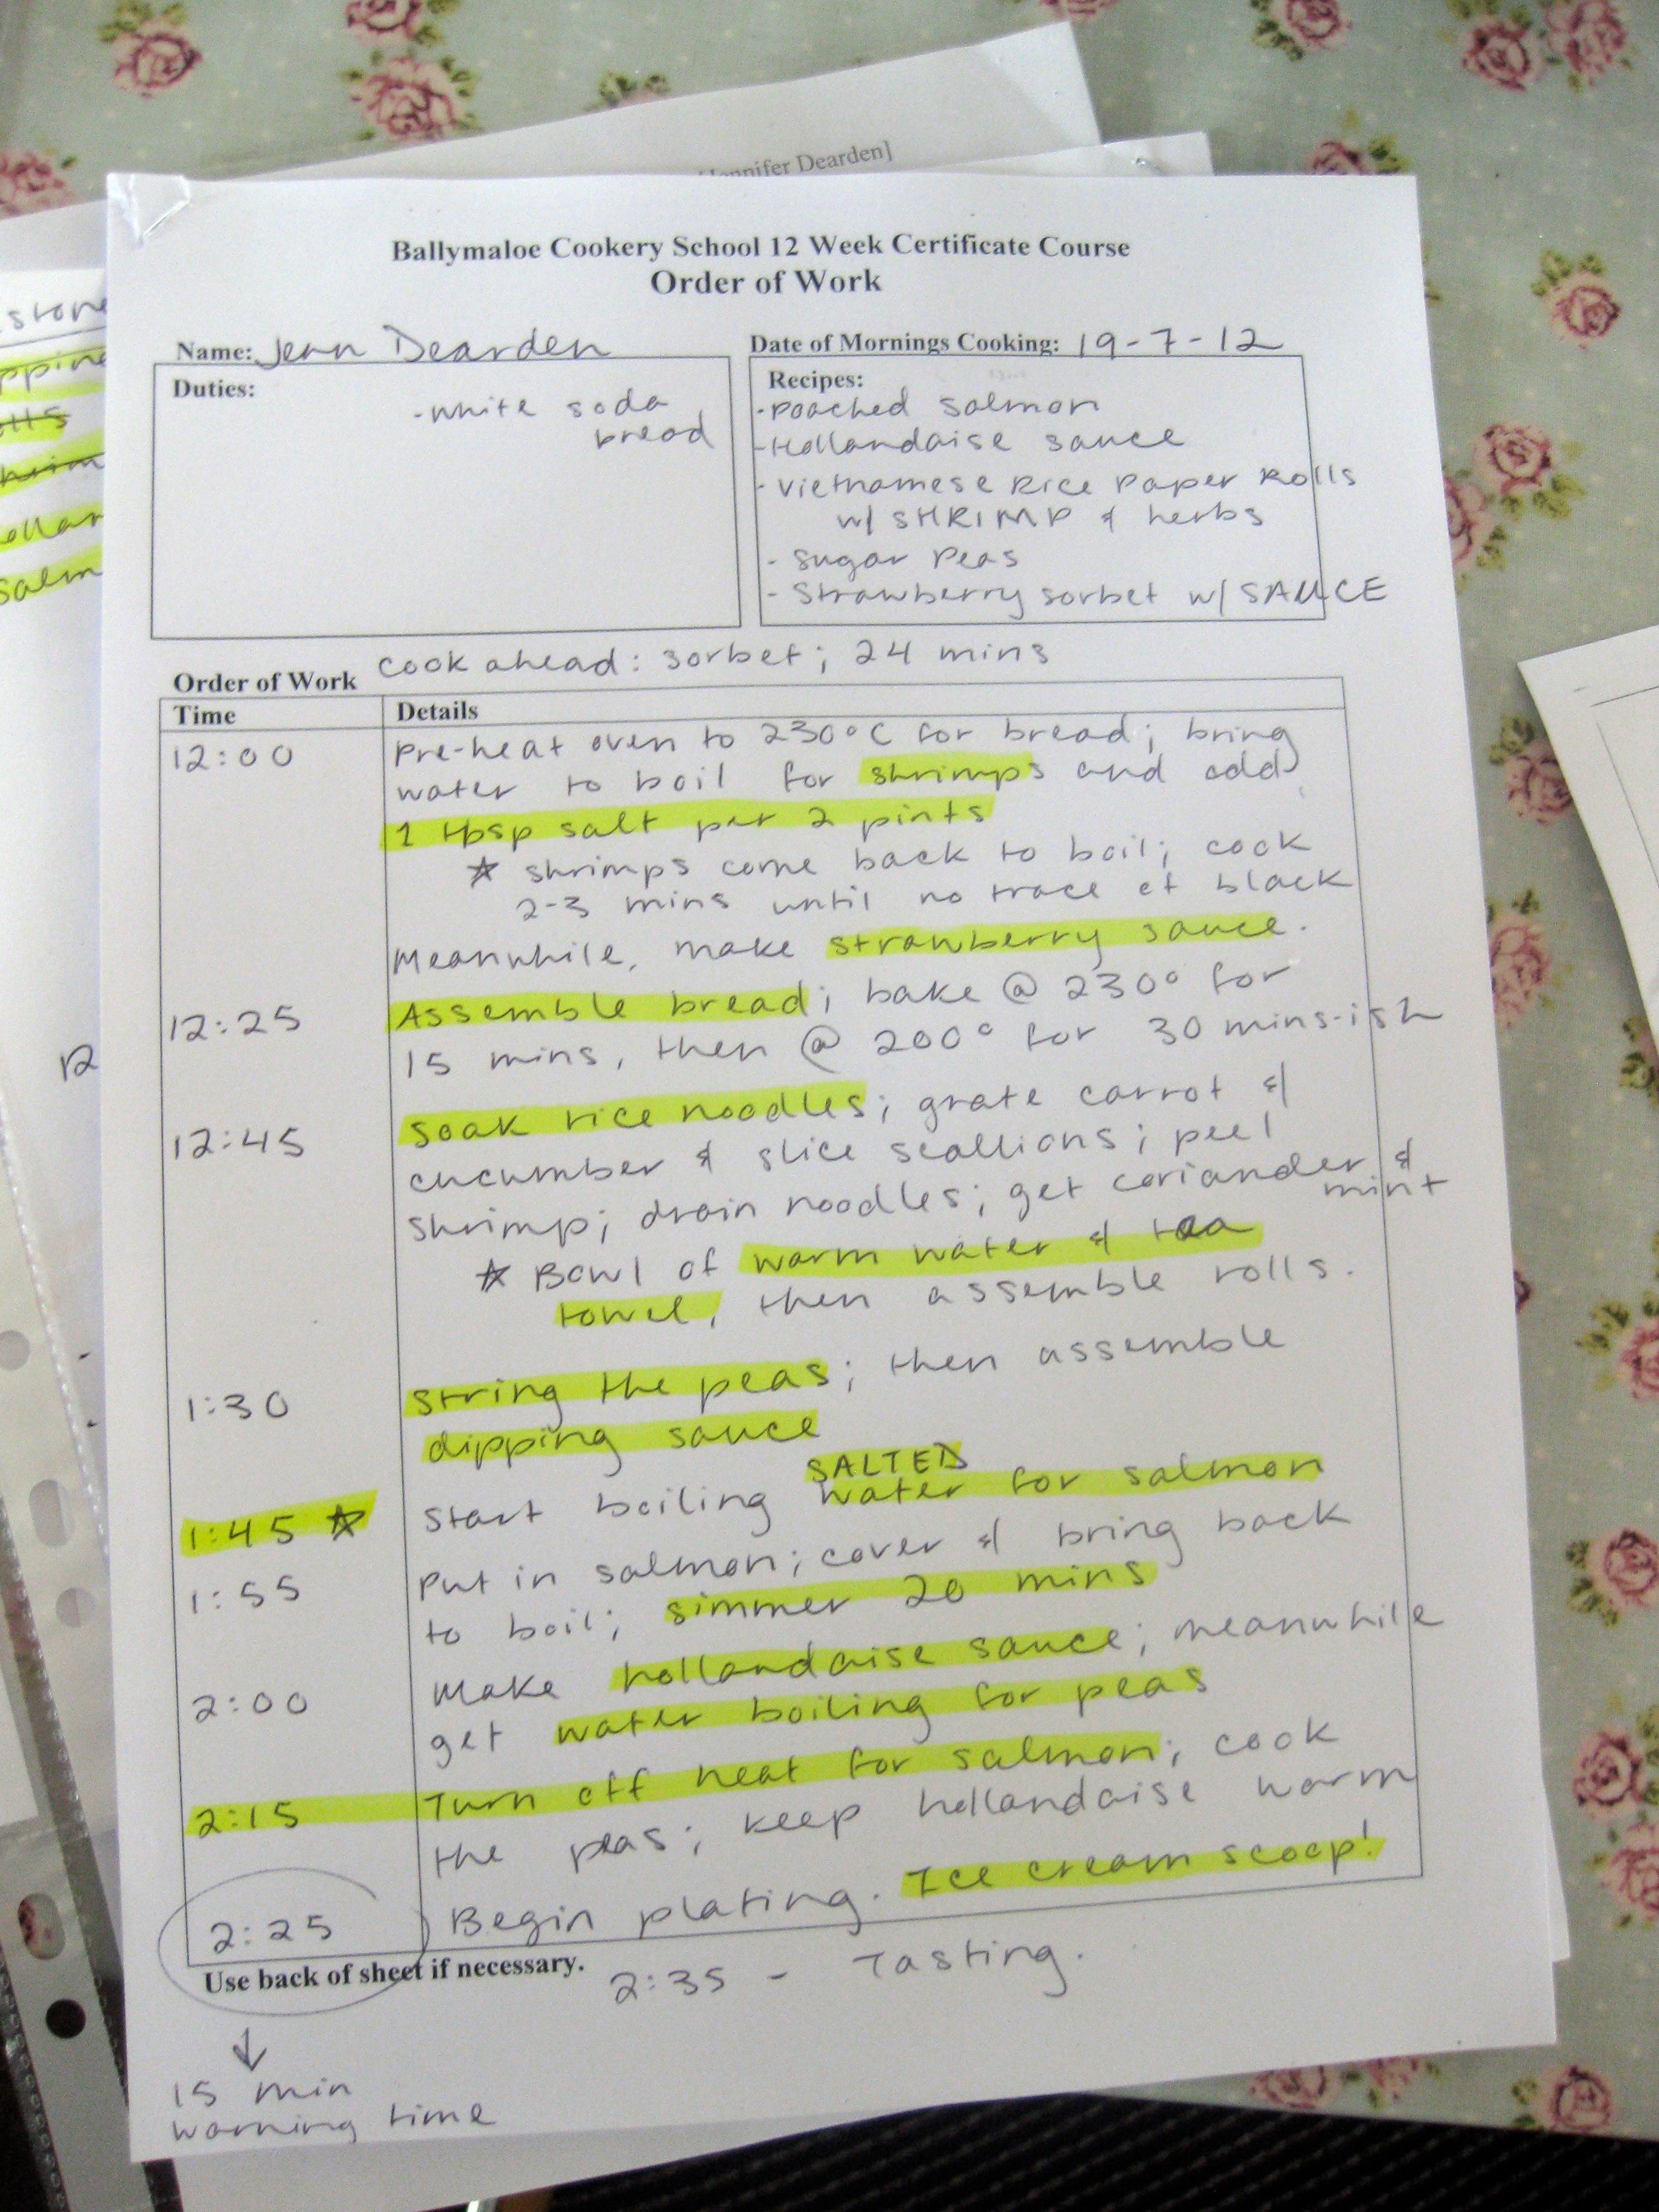 Jennifer Dearden]
Ballymaloe Cookery School 12 Week Certificate Course
Order of Work
Name: Jenn Dearden
Date of Mornings Cooking: 19-7-12
Duties:
- White soda
bread
Recipes:
- Poached Salmon
- Hollandaise sauce
- Vietnamese Rice Paper Rolls
w/ SHRIMP & herbs
- Sugar Peas
- Strawberry sorbet w/ SAUCE
Order of Work cook ahead: sorbet; 24 mins
Time Details
12:00 Pre-heat oven to 230°C for bread; bring
water to boil for shrimps and add
1 tbsp salt per 2 pints
☆ shrimps come back to boil; cook
2-3 mins until no trace of black
Meanwhile, make strawberry sauce.
12:25 Assemble bread; bake @ 230° for
15 mins, then @ 200° for 30 mins-ish
12:45 Soak rice noodles; grate carrot &
cucumber & slice scallions; peel
shrimp; drain noodles; get coriander &
mint
☆ Bowl of warm water & tea
towel, then assemble rolls.
1:30 String the peas; then assemble
dipping sauce
SALTED
1:45 ☆ Start boiling water for salmon
1:55 Put in salmon; cover & bring back
to boil; simmer 20 mins
2:00 Make hollandaise sauce; meanwhile
get water boiling for peas
2:15 Turn off heat for salmon; cook
the peas; keep hollandaise warm
2:25 Begin plating. Ice cream scoop!
Use back of sheet if necessary.
2:35 - Tasting.
↓
15 min
warning time